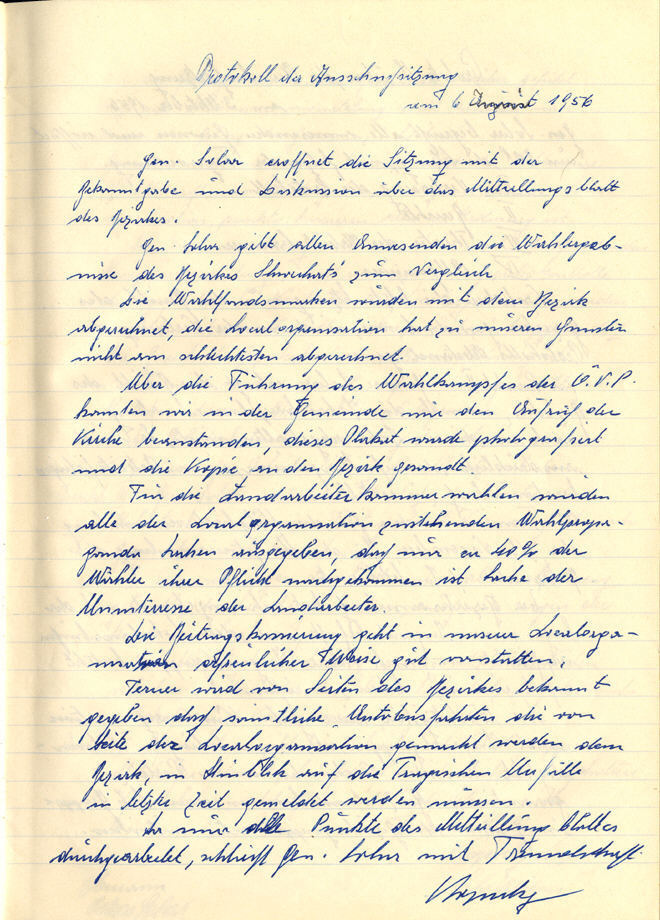 Protokoll der Ausschußsitzung
vom 6 August 1956
Gen. Lohar eröffnet die Sitzung mit der
Bekanntgabe und Diskussion über das Mitteilungsblatt
des Bezirkes.
Gen. Lohar gibt allen Anwesenden die Wahlergeb-
nisse des Bezirkes Schwechat's zum Vergleich
Die Wahlfondsmarken wurden mit dem Bezirk
abgerechnet, die Localorganisation hat zu unseren Gunsten
nicht am schlechtesten abgerechnet.
Über die Führung des Wahlkampfes der Ö.V.P.
konnten wir in der Gemeinde nur den Aufruf der
Kirche beanstanden, dieses Plakat wurde photografiert
und die Kopie an den Bezirk gesandt.
Für die Landarbeiterkammerwahlen wurden
alle der Localorganisation zustehenden Wahlpropa-
ganda Sachen ausgegeben, daß nur ca 40% der
Wähler ihrer Pflicht nachgekommen ist Sache der
Uninteresse der Landarbeiter.
Die Beitragskassierung geht in unserer Localorga-
nisation erfreulicher Weise gut vonstatten,
Ferner wird von Seiten des Bezirkes bekannt
gegeben daß sämtliche Autobusfahrten die von
seite der Localorganisation gemacht werden dem
Bezirk, in Hinblick auf die Tragischen Unfälle
in letzte Zeit gemeldet werden müssen.
Da nun alle Punkte des Mitteilung blattes
durchgearbeitet, schließt Gen. Lohar mit Freundschaft.